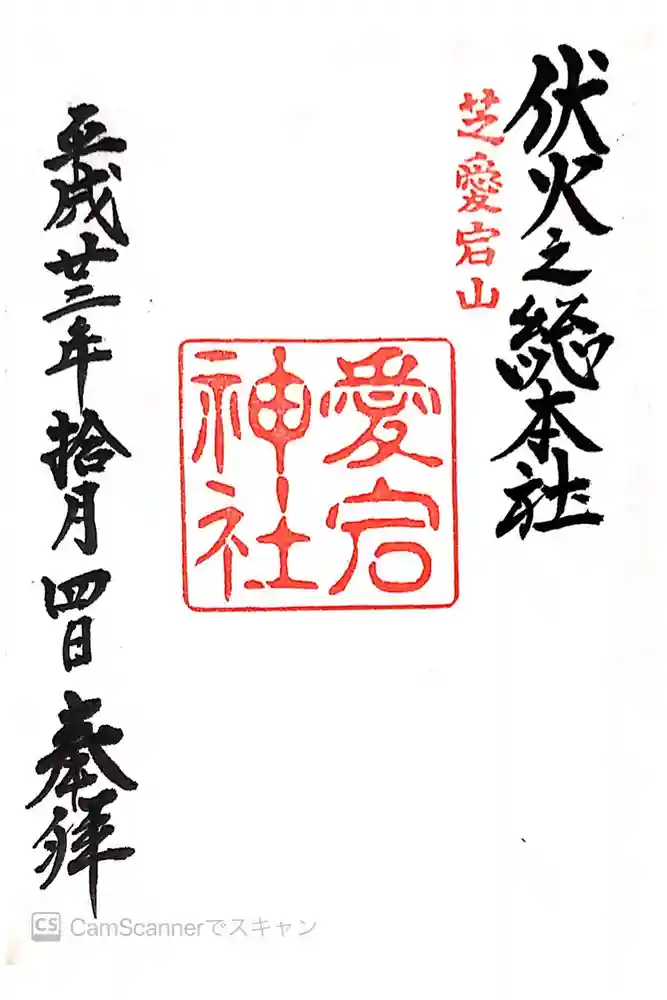 伏火之総本社
芝愛宕山
愛宕
神社
平成廿三年拾月四日奉拝
CS CamScannerでスキャン